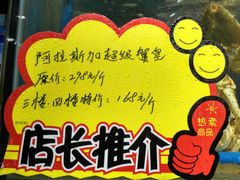 阿拉斯加超级蟹皇
原价:298元/斤
三楼.四楼特价:168元/斤
热卖
商品
店长推介